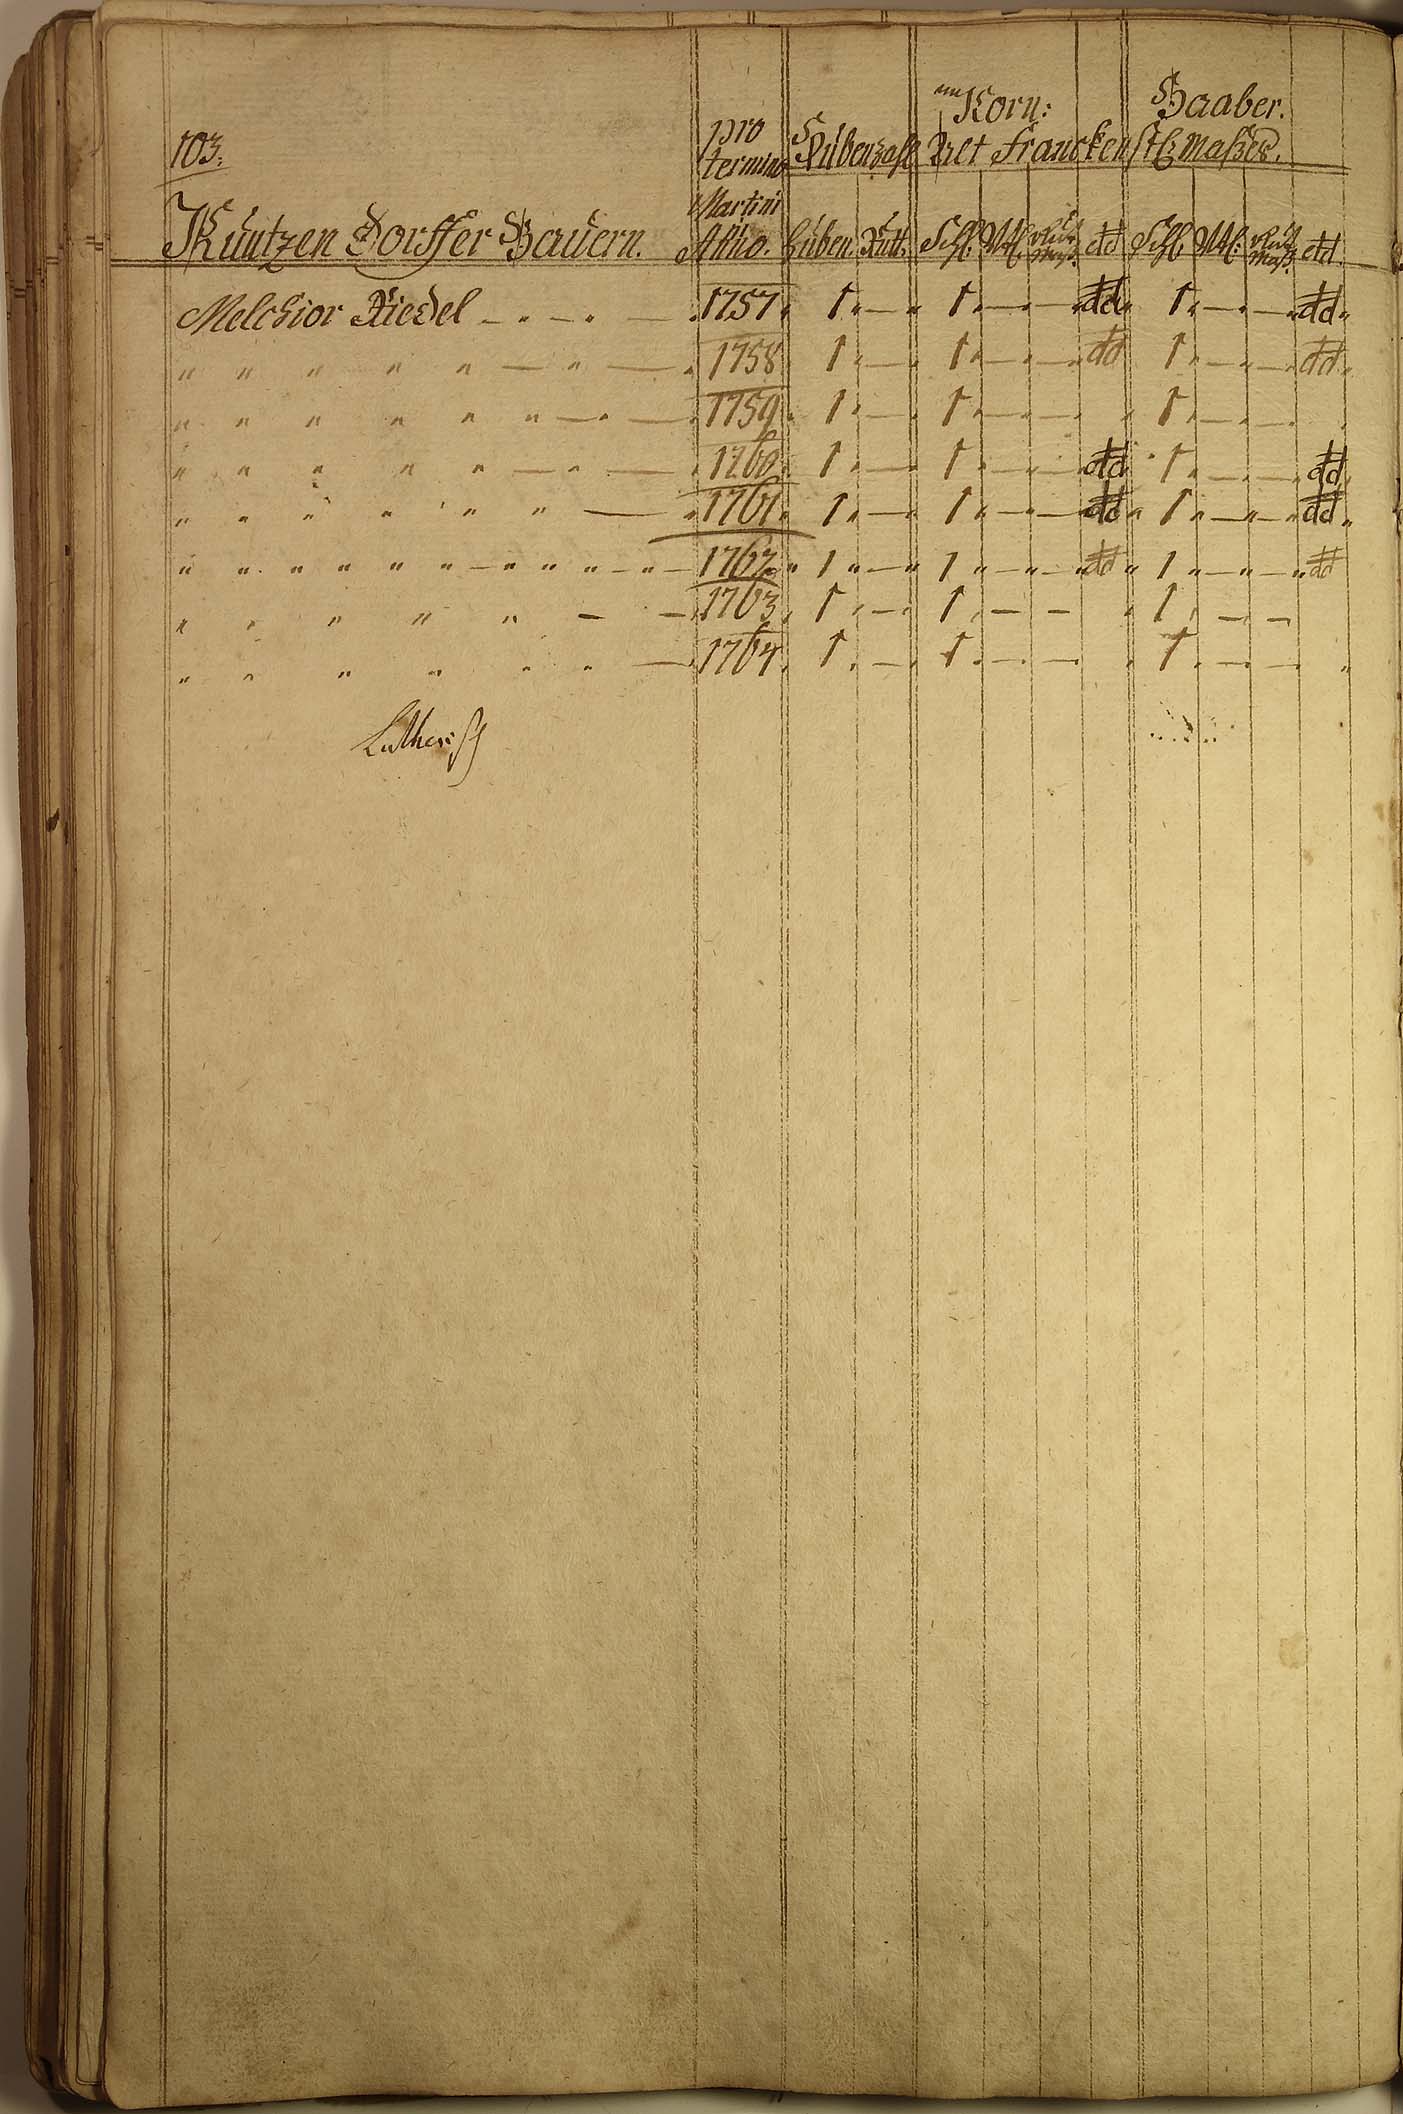 an Korn: Haaber.
103. pro Hubenzahl Alt Franckenstl: Maßes.
termino
Martini
Küntzen Dorffer Bauern. Anno. Huben. Rutt. Schl. Vtl. Maß. dd Schl. Vtl: Maß. dd.
Melchior Riedel — " — " — 1757. 1 " — " 1 " — " — dd " 1 " — " — dd "
" " " " " — " — 1758 1 " — " 1 " — " — dd 1 " — " — dd "
" " " " " " — " — 1759 1 " — " 1 " — " — 1 " — " —
" " " " " — " — 1760 1 " — " 1 " — " — dd 1 " — " — dd "
" " " " " " — 1761 1 " — " 1 " — " — dd " 1 " — " — dd "
" " " " " " — " " " " — 1762 " 1 " — " 1 " — " — dd " 1 " — " — " dd
" " " " " — — 1763 1 " — " 1 " — — 1 " — —
" " " " " " — 1764 1 " — " 1 " — " — 1 " — " — "
Lutherisch